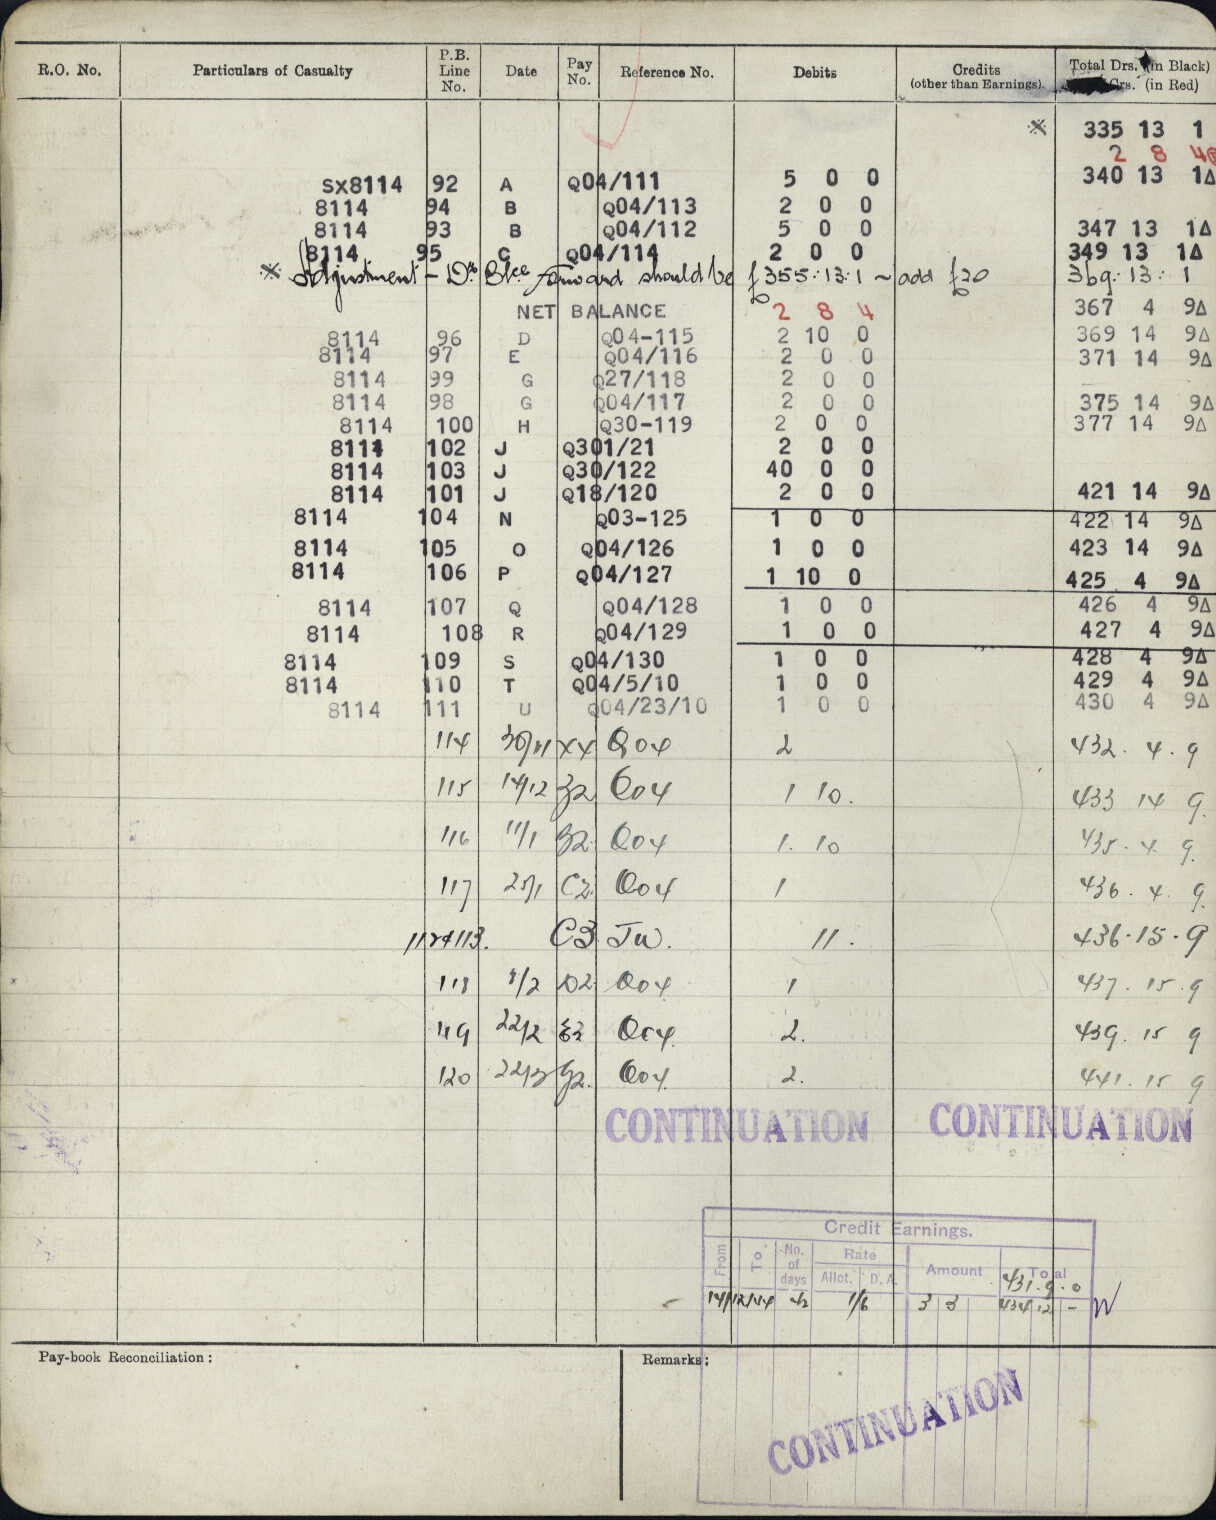 R.O. No. Particulars of Casualty P.B. Line No. Date Pay No. Reference No. Debits Credits (other than Earnings). Total Drs. (in Black) Crs. (in Red)
※ 335 13 1
2 8 4
SX8114 92 A Q04/111 5 0 0 340 13 1Δ
8114 94 B Q04/113 2 0 0
8114 93 B Q04/112 5 0 0 347 13 1Δ
8114 95 C Q04/114 2 0 0 349 13 1Δ
※ Adjustment - Dr. Blce forward should be £355:13:1 ~ add £20 369:13:1
NET BALANCE 2 8 4 367 4 9Δ
8114 96 D Q04-115 2 10 0 369 14 9Δ
8114 97 E Q04/116 2 0 0 371 14 9Δ
8114 99 G Q27/118 2 0 0
8114 98 G Q04/117 2 0 0 375 14 9Δ
8114 100 H Q30-119 2 0 0 377 14 9Δ
8114 102 J Q301/21 2 0 0
8114 103 J Q30/122 40 0 0
8114 101 J Q18/120 2 0 0 421 14 9Δ
8114 104 N Q03-125 1 0 0 422 14 9Δ
8114 105 O Q04/126 1 0 0 423 14 9Δ
8114 106 P Q04/127 1 10 0 425 4 9Δ
8114 107 Q Q04/128 1 0 0 426 4 9Δ
8114 108 R Q04/129 1 0 0 427 4 9Δ
8114 109 S Q04/130 1 0 0 428 4 9Δ
8114 110 T Q04/5/10 1 0 0 429 4 9Δ
8114 111 U Q04/23/10 1 0 0 430 4 9Δ
114 30/11 XX Q04 2 432. 4. 9
115 14/12 Q04 1 10. 433 14 9.
116 11/1 Q04 1. 10 435. 4 9.
117 25/1 C2. Q04 1 436. 4. 9.
112&113. C3 JW. 11. 436.15.9
118 8/2 D2. Q04 1 437. 15. 9
119 22/2 E2 Q04. 2. 439. 15 9
120 22/3 G2. Q04. 2. 441. 15 9
CONTINUATION CONTINUATION
Credit Earnings.
From To No. of days Rate Allot. D.A. Amount Total
431. 9. 0
14/12/44 42 1/6 3 3 434 12 -
Pay-book Reconciliation: Remarks:
CONTINUATION